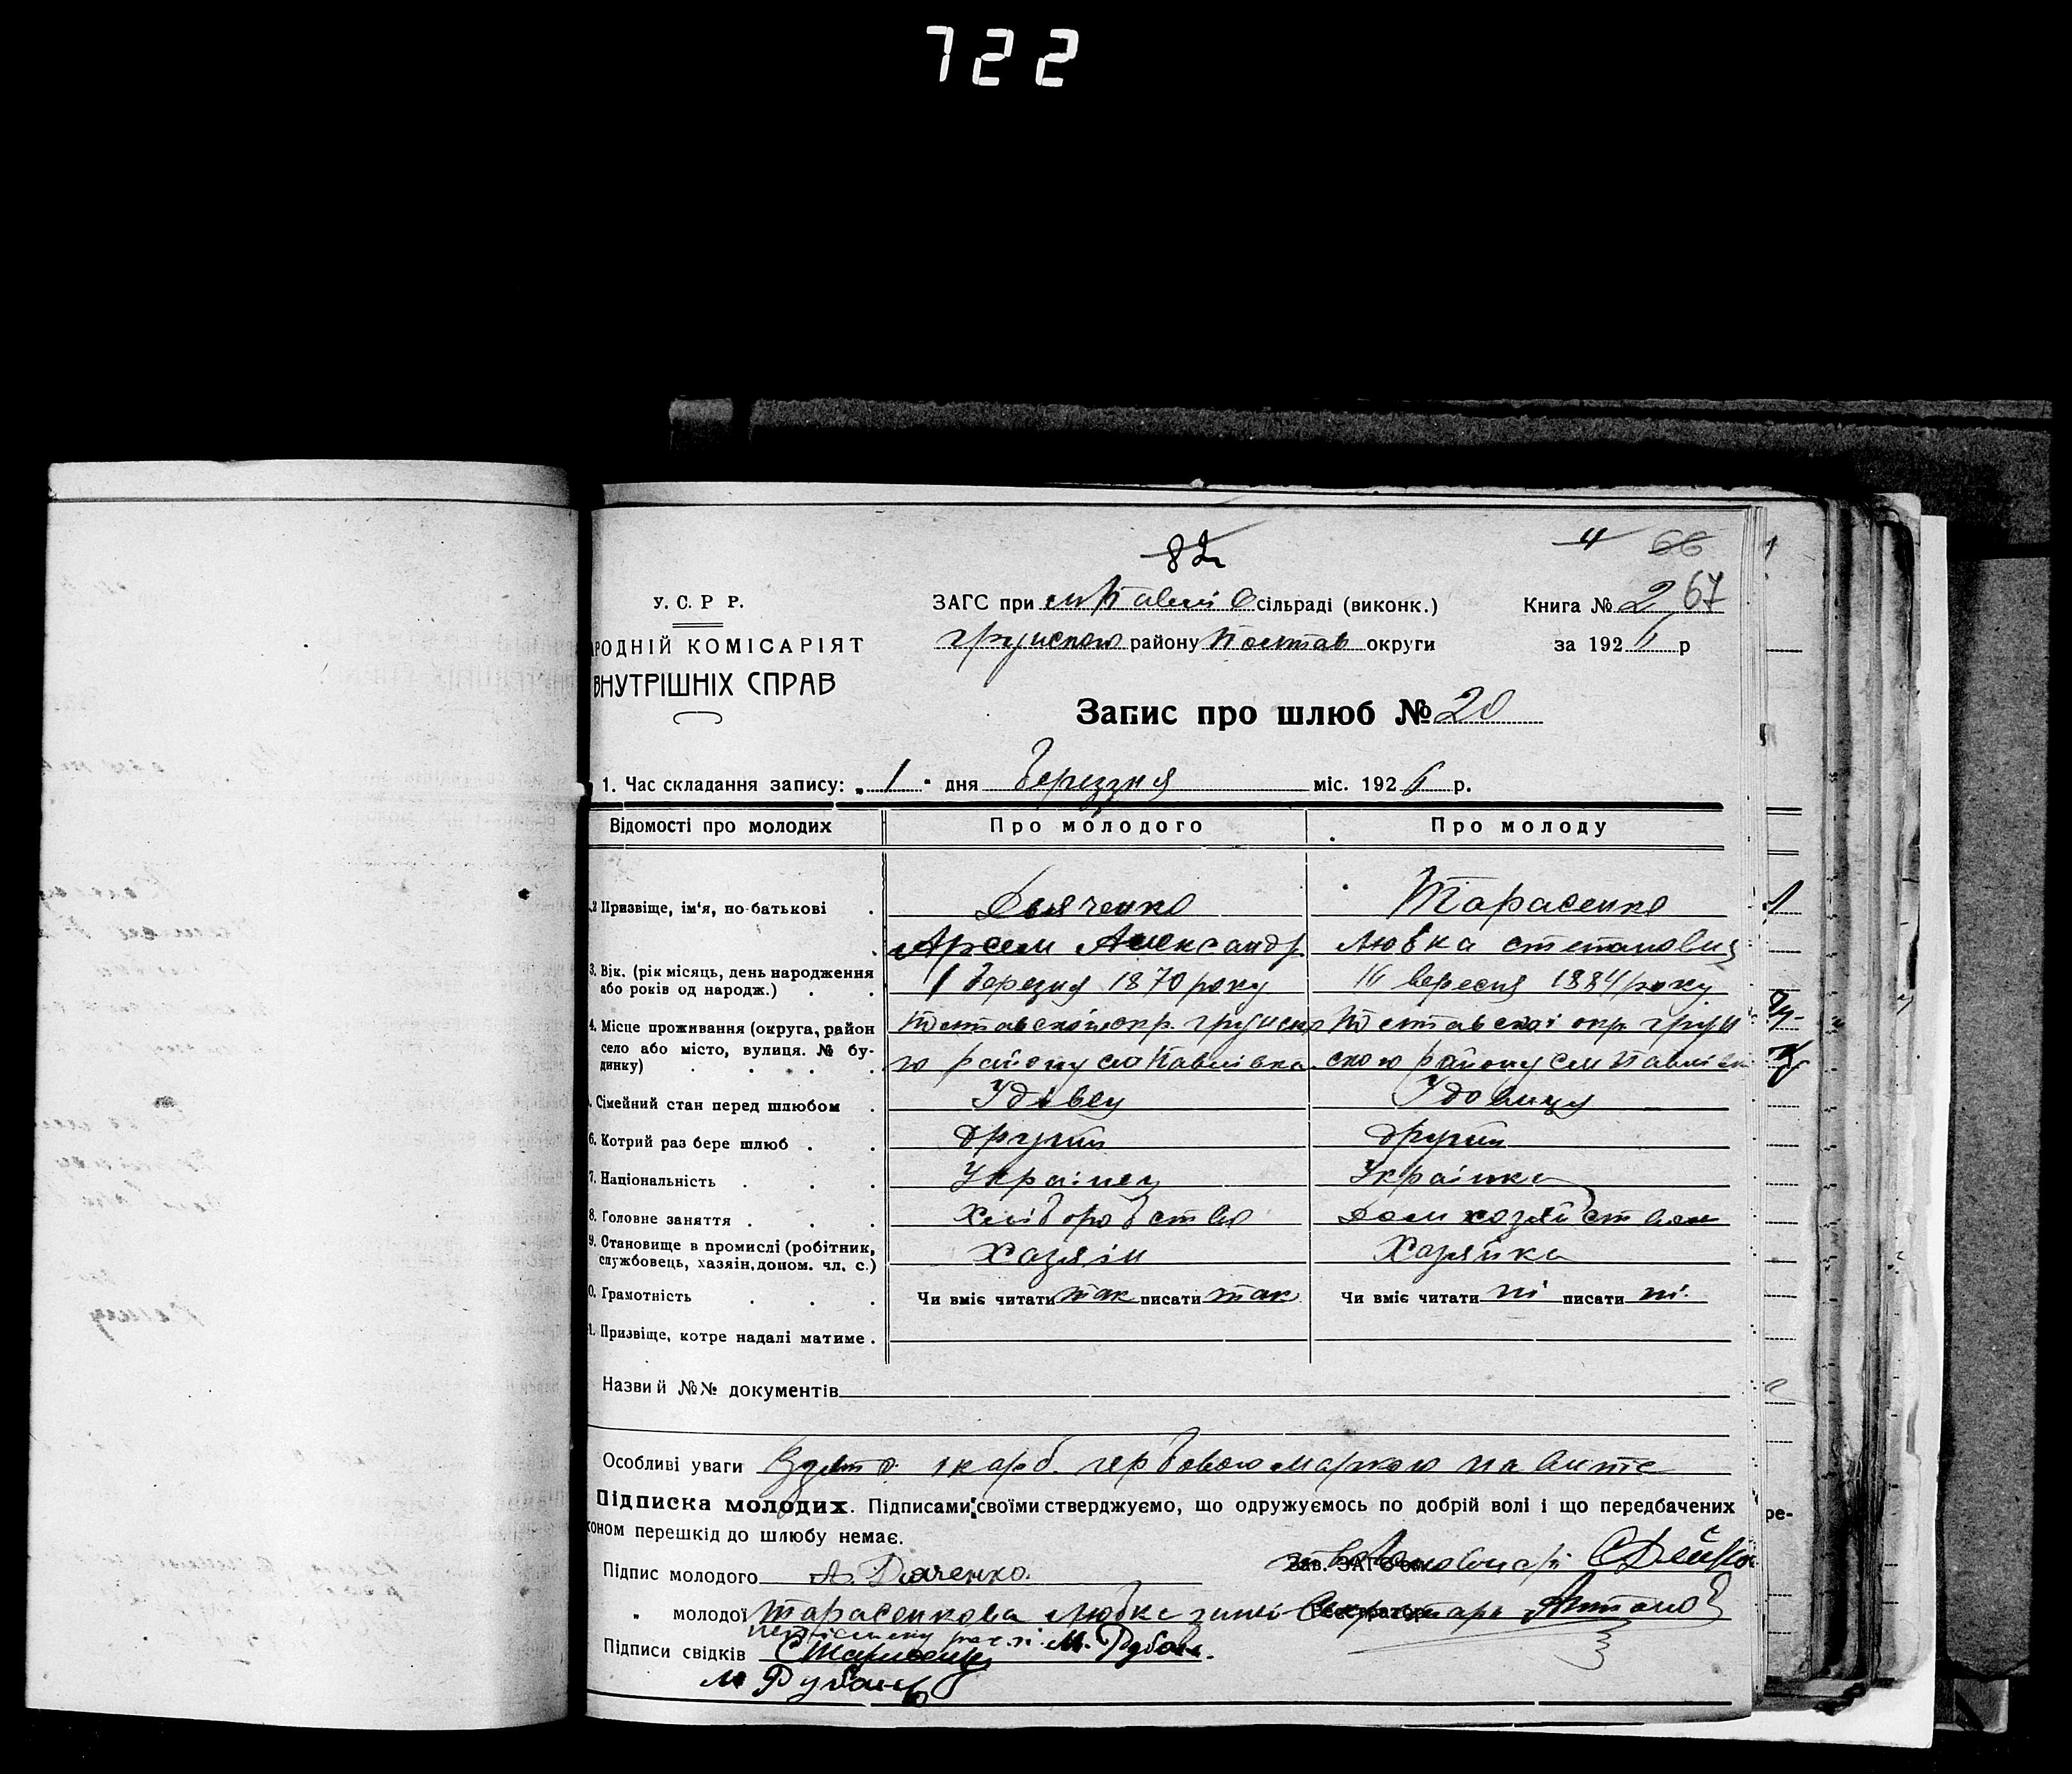 722
82
4 66
У. С. Р Р. ЗАГС при сільраді (виконк.) Книга № 2 67
РОДНІЙ КОМІСАРІЯТ грунского району Полтав округи за 192 р
ВНУТРІШНІХ СПРАВ
Запис про шлюб № 20
1. Час складання запису: „ 1 " дня березня міс. 1926 р.
Відомості про молодих Про молодого Про молоду
2 Призвіще, ім'я, по-батькові Дьяченко Тарасенко
Арсем Александр. Любка степановна
3. Вік. (рік місяць, день народження 1 березня 1870 року 16 вересня 1884 року
або років од народж.)
4. Місце проживання (округа, район Полтавской окр. грунско Полтавскоі окр. грун
село або місто, вулиця. № бу- го району Павлівка. ского району Павлівк
динку)
. Сімейний стан перед шлюбом Удівец Удовиця
6. Котрий раз бере шлюб другий другий
7. Національність Українец Українка
8. Головне заняття хліборобство Дом хозяйством
9. Становище в промислі (робітник, Хазяін Хазяйка
службовець, хазяїн, допом. чл. с.)
0. Грамотність Чи вміє читати так писати так Чи вміє читати ні писати ні.
1. Призвіще, котре надалі матиме
Назви й №№ документів
Особливі уваги Взято 1 карб. гербовою маркою на
Підписка молодих. Підписами своїми стверджуємо, що одружуємось по добрій волі і що передбачених
коном перешкід до шлюбу немає.
Підпис молодого А. Дяченко. Зав. ЗАГС'ом
" молодої Тарасенкова Любка
М. Рубан.
Підписи свідків
М Рубан
ре-